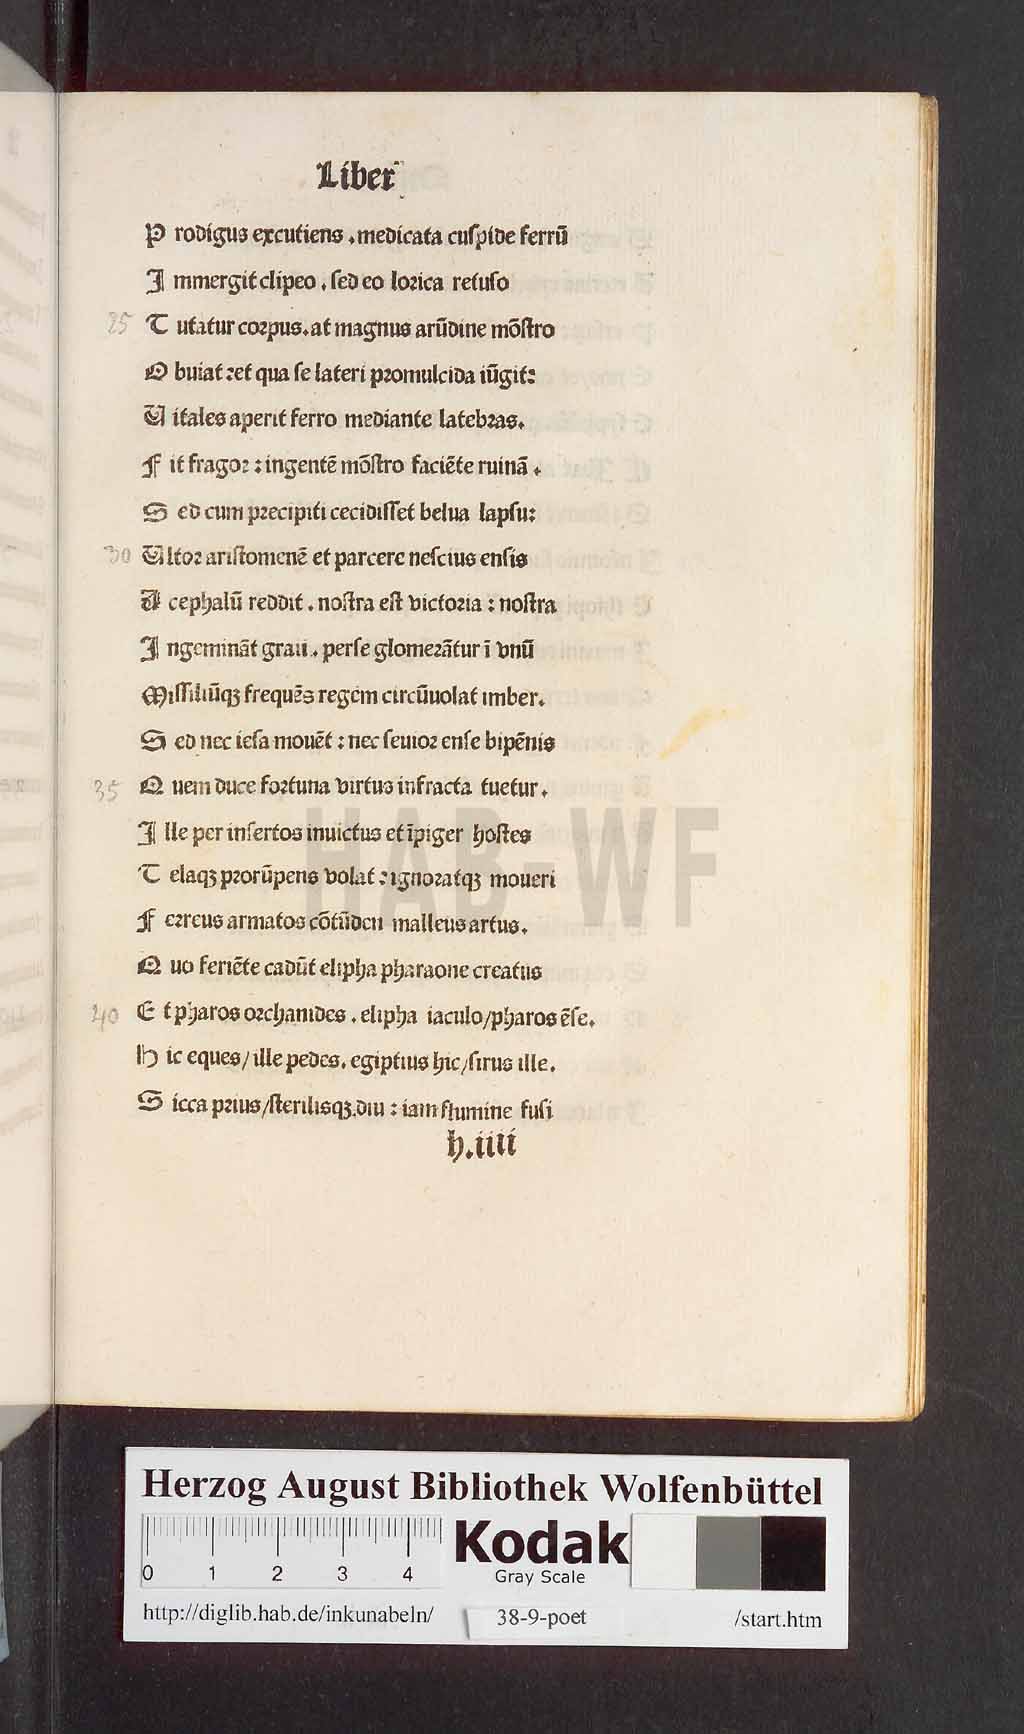 Liber
P rodigus excutiens .medicata cuſpide ferrū
I mmergit clipeo . ſed eo lorica retuſo
25 T utatur corpus.at magnus arūdine mōſtro
O buiat:et qua ſe lateri promulcida iūgit:
U itales aperit ferro mediante latebras.
F it fragor : ingentē mōſtro faciēte ruinā .
S ed cum precipiti cecidiſſet belua lapſu:
30 Ultor ariſtomenē et parcere neſcius enſis
A cephalū reddit . noſtra eſt victoria : noſtra
I ngemināt graii . perſe glomerātur ī vnū
Miſſiliūqꝫ frequēs regem circūuolat imber.
S ed nec ieſa mouēt : nec ſeuior enſe bipēnis
35 Q uem duce fortuna virtus infracta tuetur .
I lle per inſertos inuictus et īpiger hoſtes
T elaqꝫ prorūpens volat : ignoratqꝫ moueri
F erreus armatos cōtūden malleus artus.
Q uo feriēte cadūt elipha pharaone creatus
40 E t pharos orchanides . elipha iaculo/pharos ēſe.
H ic eques/ ille pedes. egiptius hic/ſirus ille.
S icca prius/ſterilisqꝫ.diu : iam flumine fuſi
h.iiii
HAB-WF
Herzog August Bibliothek Wolfenbüttel
0 1 2 3 4
Kodak
Gray Scale
http://diglib.hab.de/inkunabeln/ 38-9-poet /start.htm